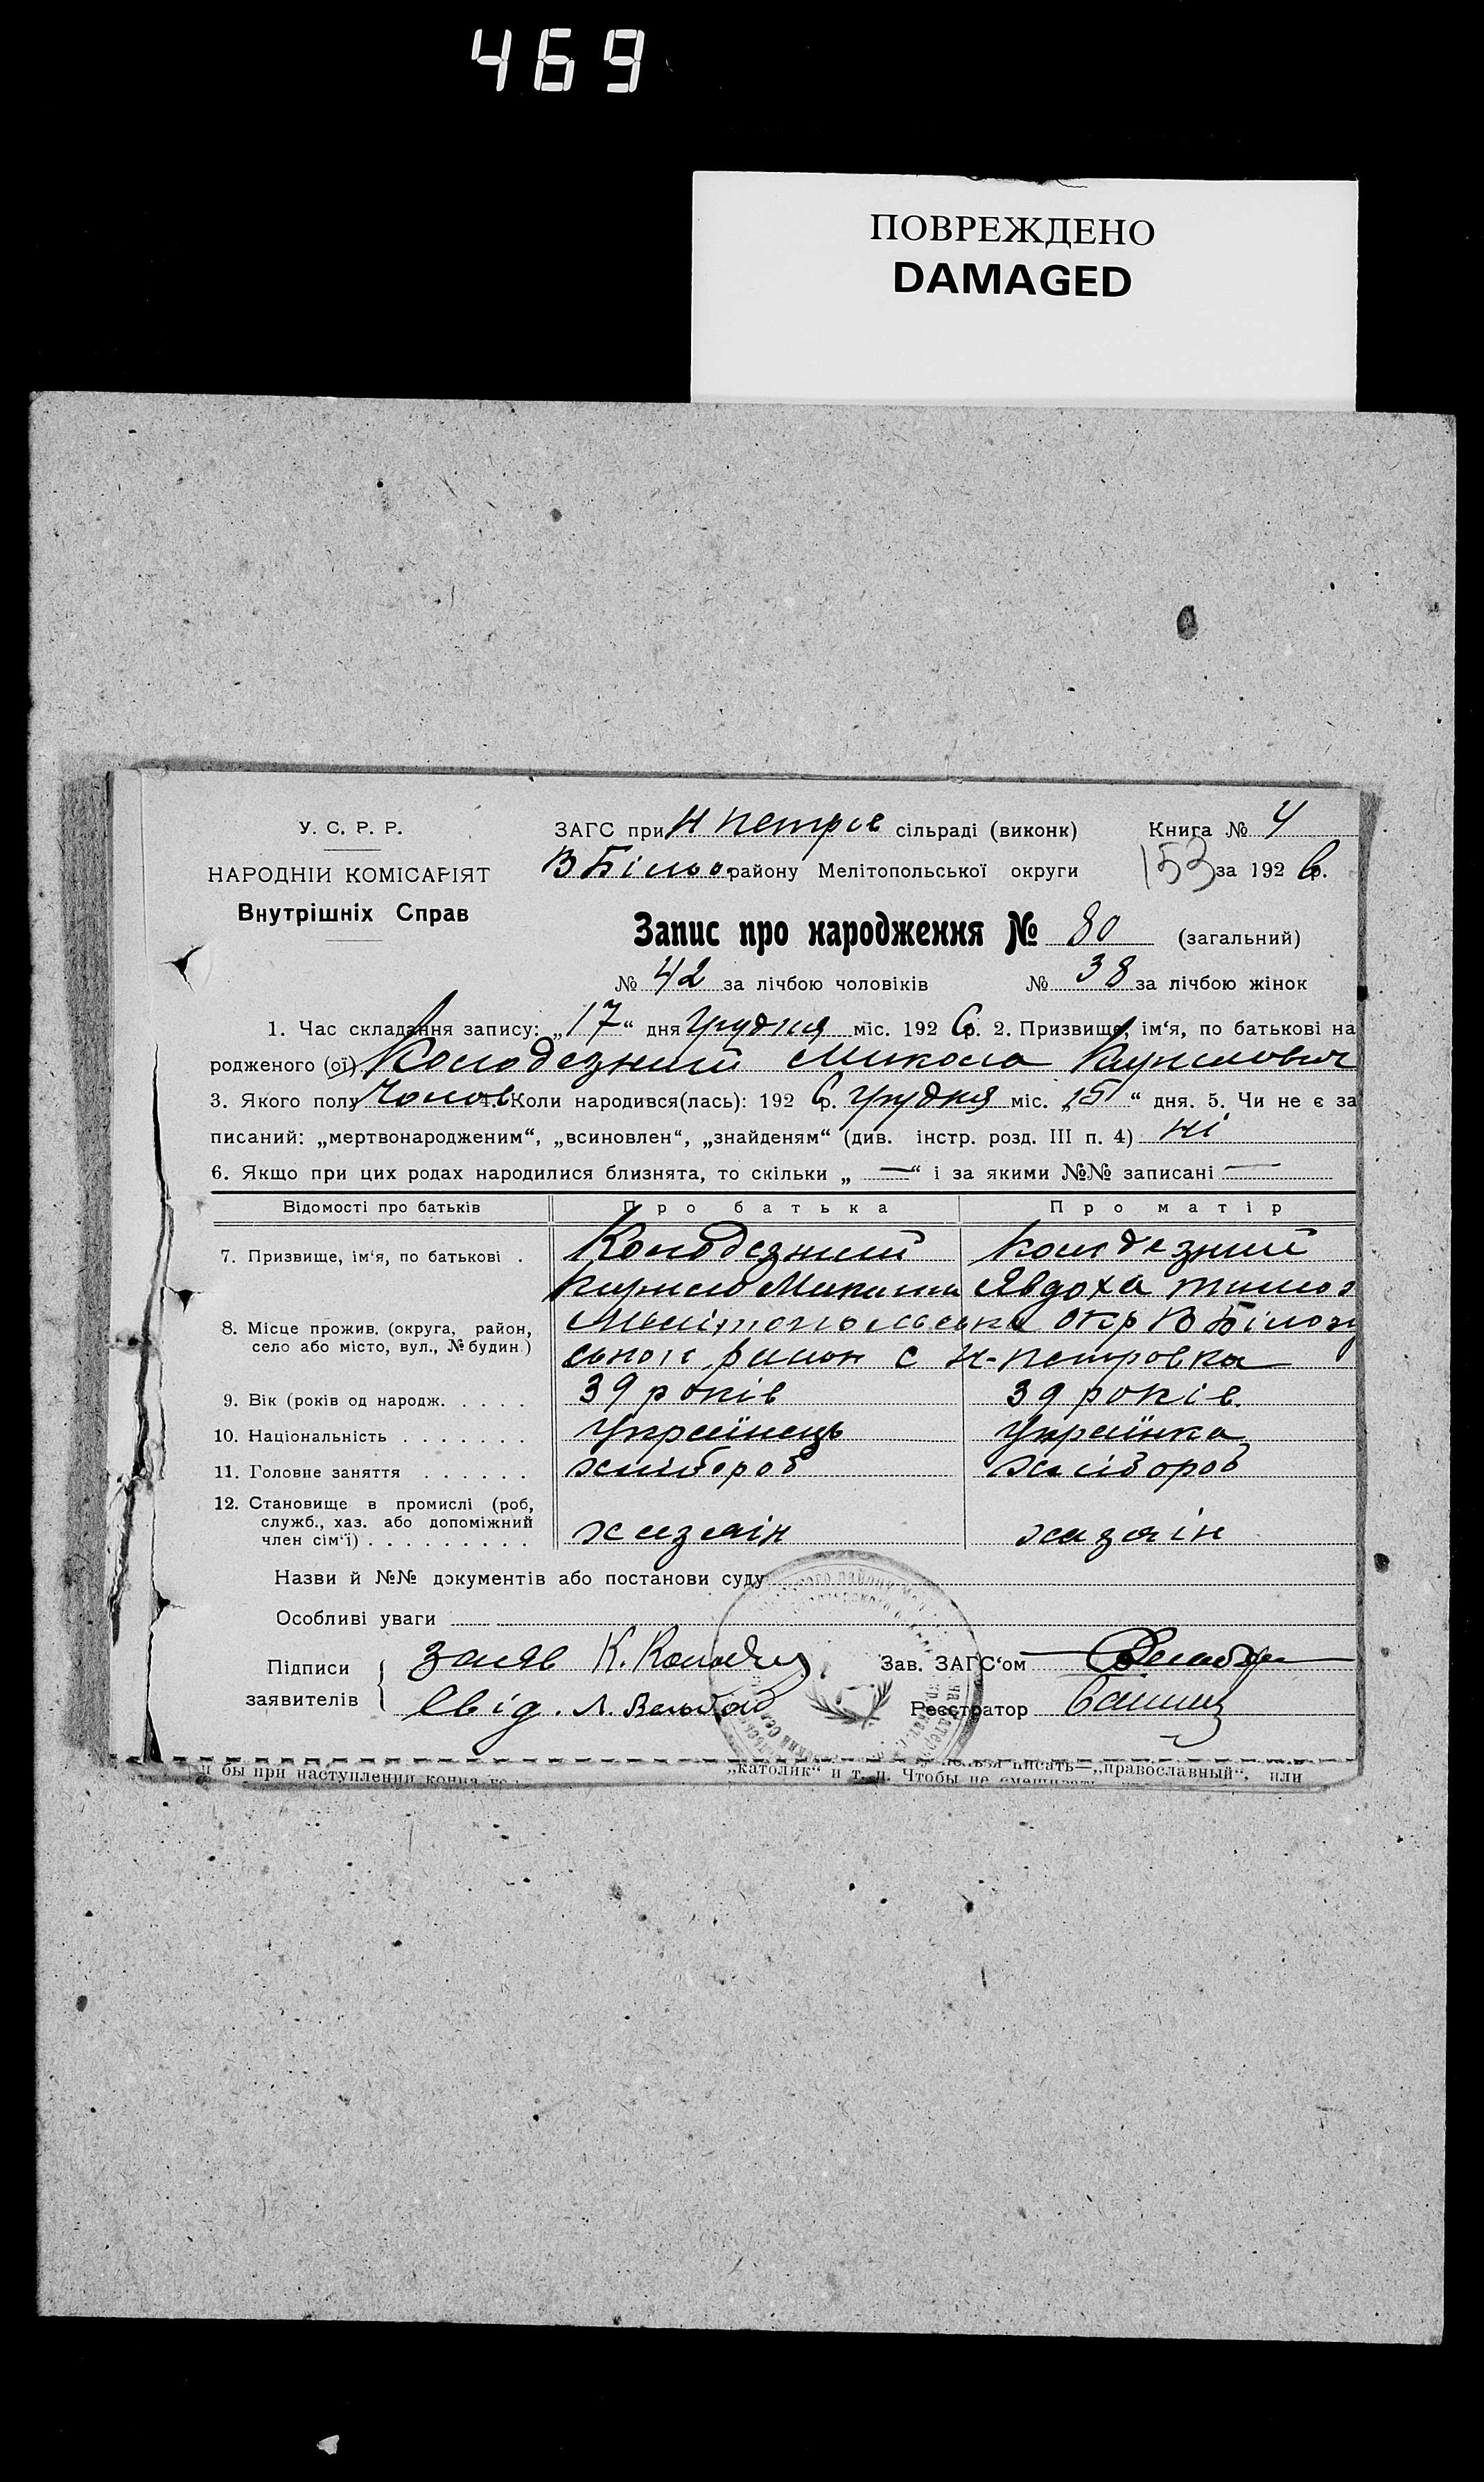 469
ПОВРЕЖДЕНО
DAMAGED
У. С. Р. Р.
НАРОДНІЙ КОМІСАРІЯТ
Внутрішніх Справ
ЗАГС при Н Петров сільраді (виконк) Книга № 4
В Біло району Мелітопольської округи 153 за 1926 р.
Запис про народження № 80 (загальний)
№ 42 за лічбою чоловіків № 38 за лічбою жінок
1. Час складання запису: „17“ дня грудня міс. 1926 р. 2. Призвище, ім‘я, по батькові на
родженого (ої) Колодезний Микола Кирилович
3. Якого полу Чолов 4. Коли народився(лась): 1926 р. грудня міс. „15“ дня. 5. Чи не є за
писаний: „мертвонародженим“, „всиновлен“, „знайденям“ (див. інстр. розд. III п. 4) ні
6. Якщо при цих родах народилися близнята, то скільки „ — “ і за якими №№ записані —
Відомості про батьків Про батька Про матір
7. Призвище, ім‘я, по батькові . Колодезний Колодезний
Кирило Микит Явдоха Тимоф
8. Місце прожив. (округа, район, село або місто, вул., № будин) Мелітопольська окр В Білозер
ського район с Н-Петровка
9. Вік (років од народж. . . . . 39 років 39 років.
10. Національність . . . . . . . Українець Українка
11. Головне заняття . . . . . . хлібороб хлібороб
12. Становище в промислі (роб, служб., хаз. або допоміжний член сім‘ї) . . . . . . . . . хазяін хазяін
Назви й №№ документів або постанови суду
Особливі уваги
Підписи заявителів { Заяв К. Колодез Зав. ЗАГС‘ом
Свід. Л. Реєстратор
и бы при наступлении конца „католик“ и т. п. Чтобы не смешивать писать—„православный“, или